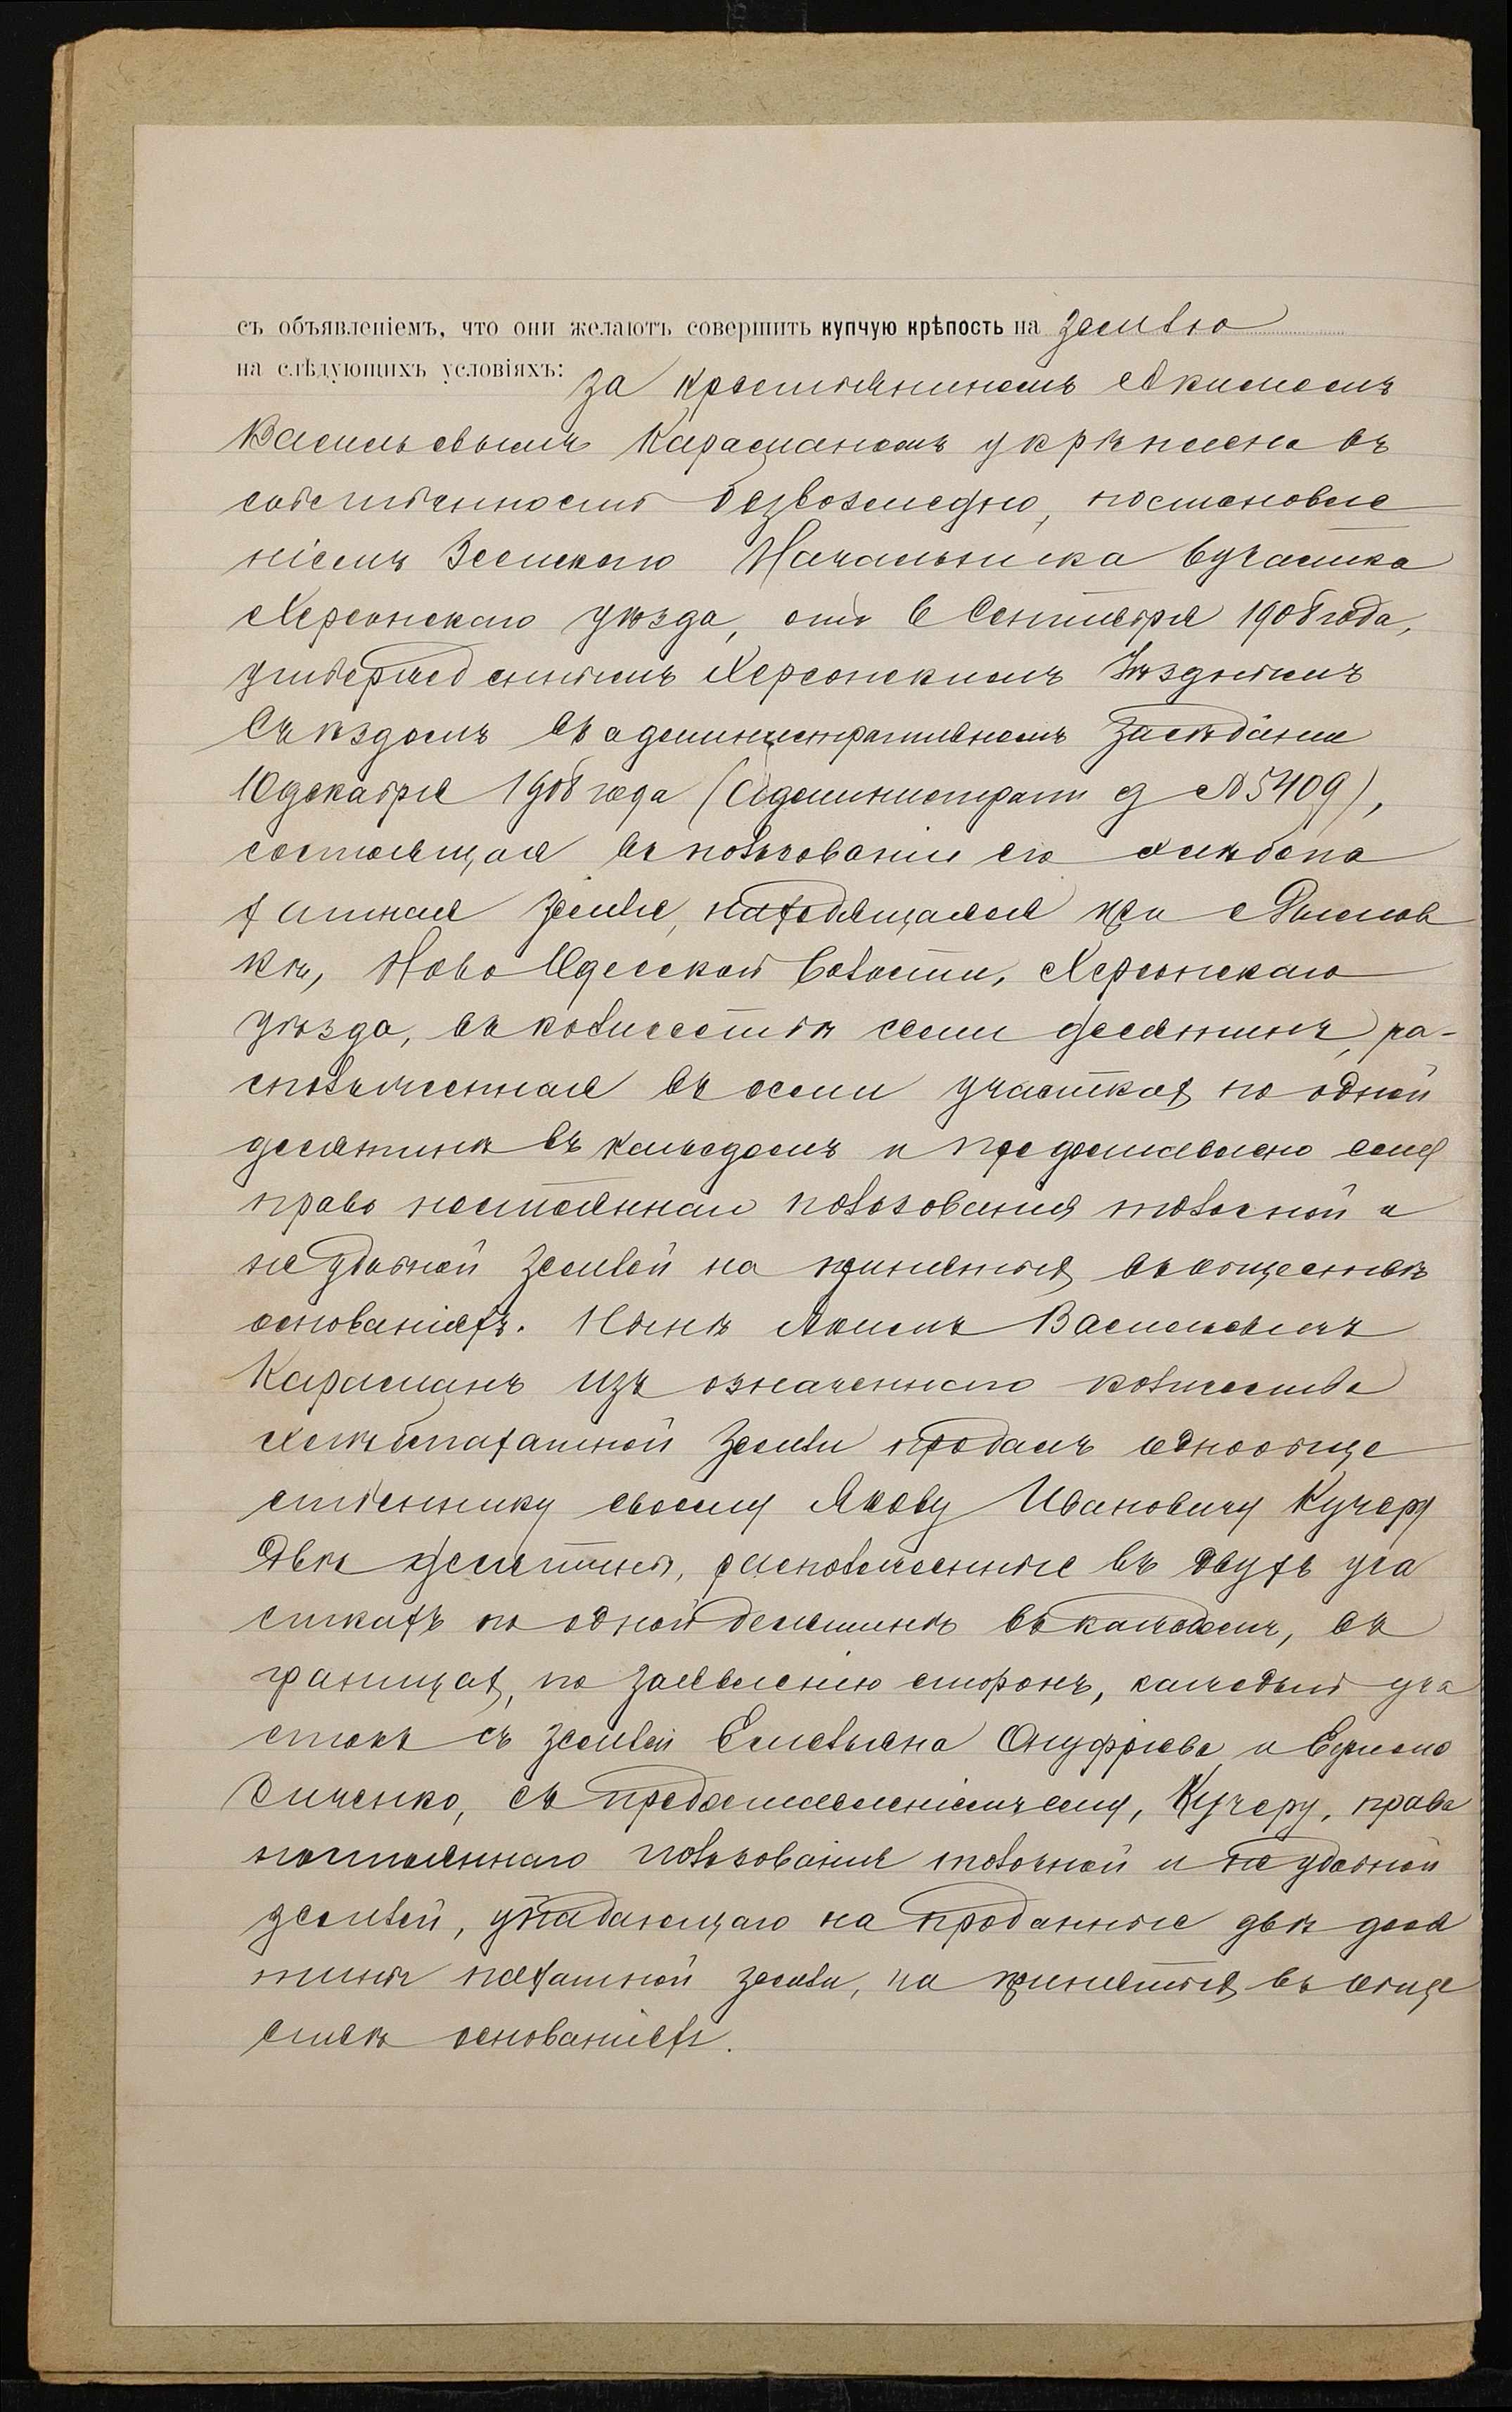 съ объявленіемъ, что они желаютъ совершить купчую крѣпость на землю
на слѣдующихъ условіяхъ: За крестьяниномъ Акимомъ
Васильевымъ Караманомъ укрѣплена въ
собственность безвозмездно, постановле
ніемъ Земскаго Начальника 6 участка
Херсонскаго уѣзда, отъ 6 Сентября 1908 года,
утвержденнымъ Херсонскимъ Уѣзднымъ
Съѣздомъ въ административномъ засѣданіи
10 декабря 1908 года (Администрати д № 5409),
состоящая въ пользованіи его хлѣбопа
хатная земля, находящаяся при с Дымов
кѣ, Ново Одесской Волости, Херсонскаго
уѣзда, въ количествѣ семи десятинъ, ра-
сположенная въ семи участках по одной
десятинѣ въ каждомъ и предоставлено ему
право постояннаго пользованія толочной и
не удобной землей на принятых въ обществѣ
основаніяхъ. Нынѣ Акимъ Васильевичъ
Караманъ изъ означеннаго количества
хлѣбопахатной земли продалъ однообще
ственнику своему Якову Ивановичу Кучеру
двѣ десятины, расположенные въ двухъ уча
сткахъ по одной десятинѣ въ каждомъ, въ
границах, по заявленію сторонъ, каждый уча
стокъ съ землей Емельяна Онуфріева и Ефима
Диченко, съ предоставленіемъ ему, Кучеру, права
постояннаго пользованія толочной и не удобной
землей, упадающаго на проданные двѣ деся
тины пахатной земли, на принятых въ обще
ствѣ основаніяхъ.